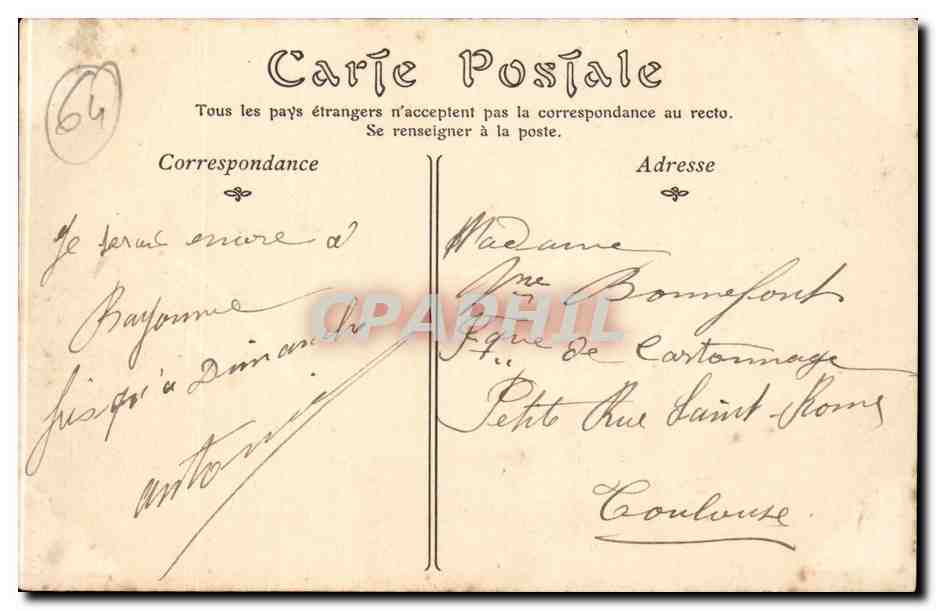 64
Carte Postale
Tous les pays étrangers n'acceptent pas la correspondance au recto.
Se renseigner à la poste.
Correspondance
Je serai encore à
Bayonne
jusqu'à Dimanche
Antonin
Adresse
Madame
Vve Bonnefont
Fque de Cartonnage
Petite Rue Saint-Rome
Toulouse.
CPAPHIL